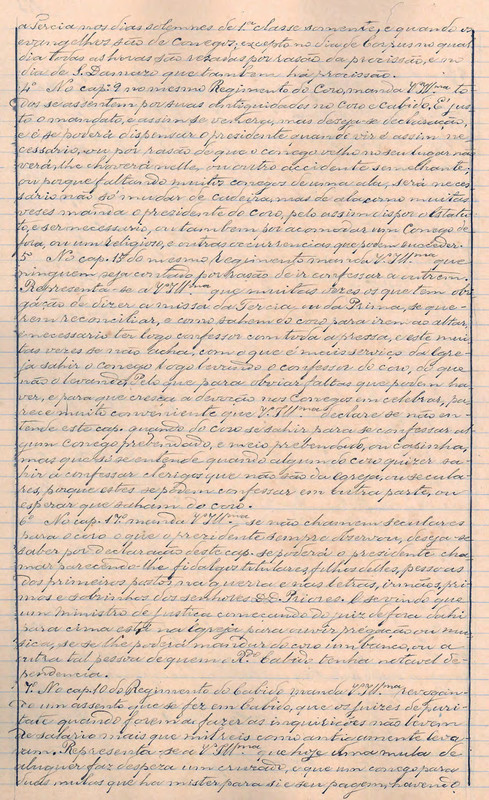 a Tercia nos dias solemnes de 1ª classe somente, e quando os
evangelhos são de Conegos, excepto no dia de Corpus no qual
dia todas as horas são resadas por rasão da procissão, e no
dia de S. Damazo que tambem ha procissão.
4º No cap. 9 no mesmo Regimento do Coro, manda V. Illma to-
dos se assentem, por suas antiguidades no Coro e Cabido. É jus-
to o mandato, e assim se venera, mas deseja-se declaração,
e é se poderá dispensar o presidente quando vir é assim ne-
cessario, ou por rasão de que o conego velho no seu lugar não
verá, lhe choverá nelle, ou outro accidente semelhante,
ou porque faltando muitos conegos de uma ala, será neces-
sario não só mudar de cadeira, mas de ala, como muitas
veses manda o presidente do coro, pelo assim dispor o Estatu-
to, e ser necessario, ou tambem por acomodar um Conego de
fora, ou um Religioso, e outras occurrencias que podem succeder.
5º No cap. 13 do mesmo Regimento manda V. Illma que
ninguem seja contado por rasão de ir confessar a outrem.
Representa-se a V. Illma que muitas veses os que tem obri-
gação de dizer a missa da Tercia, ou da Prima, se que-
rem reconciliar, e como sahem do coro para irem ao altar,
é necessario ter logo confessor com toda a pressa, e este mui-
tas veres se não acha, com o que é mais serviço da Igre-
ja sahir o conego logo levando o confessor do coro, do que
não o levando. Pelo que para obviar faltas que podem ha-
ver, e para que cresça a devoção nos Conegos em celebrar, pa-
rece muito conveniente que V. Illma declare se não en-
tende este cap. quando do coro se sahir para se confessar al-
gum conego prebendado, e meio prebendado, ou casinha,
mas que si se entende quando algum do coro quizer sa-
hir a confessar clerigos que não são da Igreja, ou secula-
res, porque estes se podem confessar em outra parte, ou
esperar que se saham do coro.
6º No cap. 17 manda V. Illma se não chamem seculares
para o coro o que o presidente sempre observou, deseja-se
saber por declaração deste cap. se poderá o presidente cha-
mar parecendo-lhe fidalgos titulares, filhos delles, pessoas
dos primeiros postos na guerra e nas letras, irmãos, pri-
mos e sobrinhos dos senhores D.D. Priores. E se vindo que
um ministro de justiça começando do juiz de fora dahi
para cima está na Igreja para ouvir pregação ou mu-
sica, se se lhe poderá mandar do coro um banco, ou a
outra tal pessoa de quem o Rdo Cabido tenha notavel de-
pendencia.
7º No cap. 10 do Regimento do Cabido manda V. Illma
do um assento que se fez em Cabido, que os juizes de puri-
tate quando forem a fazer as inquirições não levem
de salario mais que mil reis como antigamente leva-
vam. Representa-se a V. Illma que hoje uma mula de
aluguer faz despeza um cruzado, e que um conego para
duas mulas que ha mister para si e seu pagem havendo